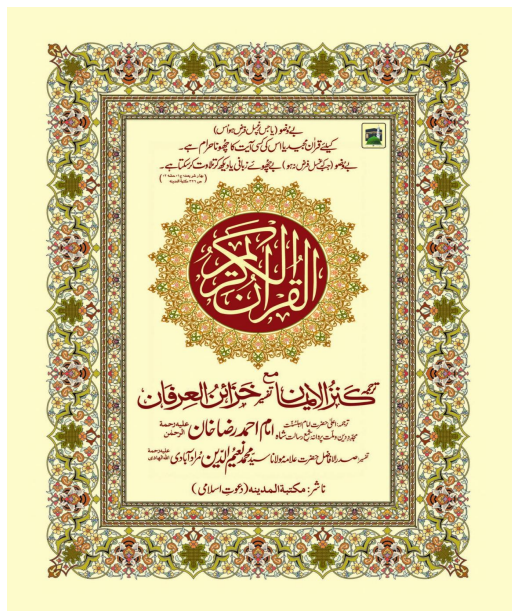 بے وضو (یا جس پر غسل فرض ہو اُس)
کیلئے قرآن مجید یا اس کی کسی آیت کا چھونا حرام ہے۔
بے وضو (جبکہ غسل فرض نہ ہو) بے چھوئے زبانی یا دیکھ کر تلاوت کر سکتا ہے۔
القرآن الکریم
ترجمہ کنزالایمان مع تفسیر خزائن العرفان
ترجمہ: اعلیٰ حضرت امام اہلسنت
مجدد دین و ملت پروانہ شمع رسالت شاہ امام احمد رضا خان علیہ رحمۃ الرحمٰن
تفسیر: صدر الافاضل حضرت علامہ مولانا سید محمد نعیم الدین مراد آبادی علیہ رحمۃ اللہ الھادی
ناشر: مکتبۃ المدینہ (دعوت اسلامی)